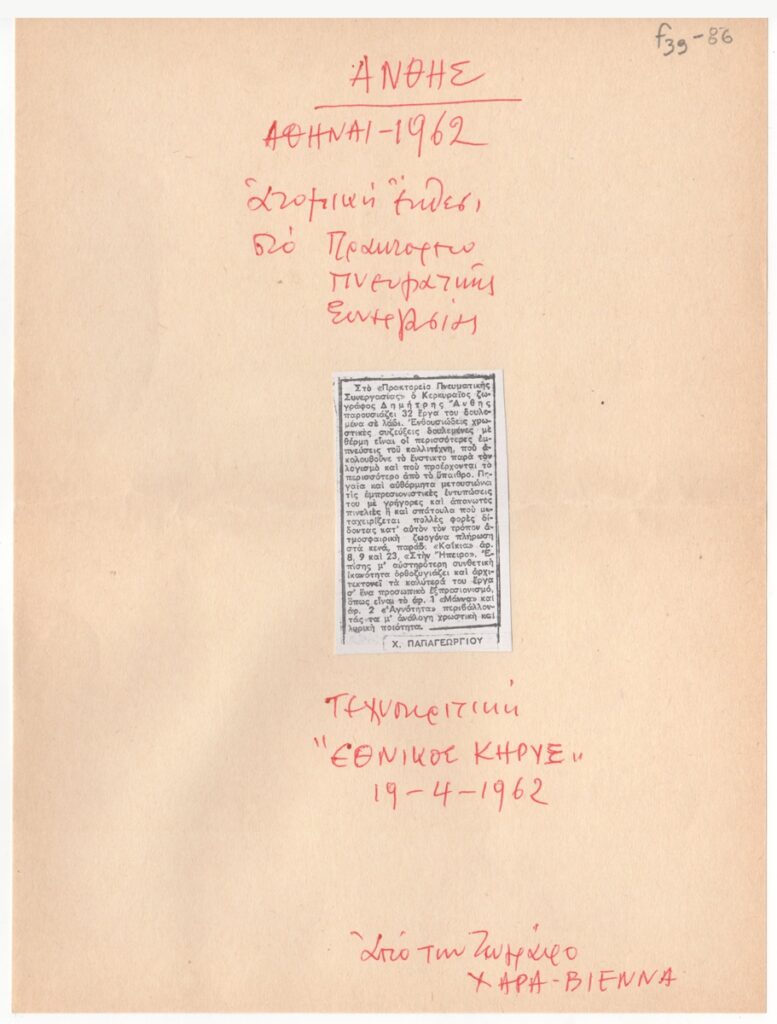 f39-86
ΑΝΘΗΣ
ΑΘΗΝΑΙ-1962
Ἀτομική Ἔκθεσι
στό Πρακτορείο
Πνευματικῆς
Συνεργασίας
Στὸ «Πρακτορεῖο Πνευματικῆς
Συνεργασίας» ὁ Κερκυραῖος ζω-
γράφος Δημήτρης Ἄνθης
παρουσιάζει 32 ἔργα του δουλε-
μένα σὲ λάδι. Ἐνθουσιώδεις χρω-
στικὲς συζεύξεις δουλεμένες μὲ
θέρμη εἶναι οἱ περισσότερες ἐμ-
πνεύσεις τοῦ καλλιτέχνη, ποὺ ἀ-
κολουθοῦνε τὸ ἔνστικτο παρὰ τὸν
λογισμὸ καὶ ποὺ προέρχονται τὸ
περισσότερο ἀπὸ τὸ ὕπαιθρο. Πη-
γαῖα καὶ αὐθόρμητα μετουσιώνει
τὶς ἐμπρεσιονιστικὲς ἐντυπώσεις
του μὲ γρήγορες καὶ ἀπανωτὲς
πινελιὲς ἢ καὶ σπάτουλα ποὺ με-
ταχειρίζεται πολλὲς φορὲς δί-
δοντας κατ' αὐτὸν τὸν τρόπον ἀ-
τμοσφαιρικὴ ζωογόνα πλήρωση
στὰ κενά, παράβ. «Καΐκια» ἀρ.
8, 9 καὶ 23, «Στὴν Ἤπειρο». Ἐ-
πίσης μ' αὐστηρότερη συνθετικὴ
ἱκανότητα ὀρθοζυγιάζει καὶ ἀρχι-
τεκτονεῖ τὰ καλύτερά του ἔργα
σ' ἕνα προσωπικὸ ἐξπρεσιονισμό,
ὅπως εἶναι τὸ ἀρ. 1 «Μάννα» καὶ
ἀρ. 2 «Ἁγνότητα» περιβάλλον-
τάς τα μ' ἀνάλογη χρωστικὴ καὶ
λυρικὴ ποιότητα.
Χ. ΠΑΠΑΓΕΩΡΓΙΟΥ
Τεχνοκριτική
"ΕΘΝΙΚΟΣ ΚΗΡΥΞ"
19-4-1962
Ἀπό την Ζωγράφο
ΧΑΡΑ-ΒΙΕΝΝΑ